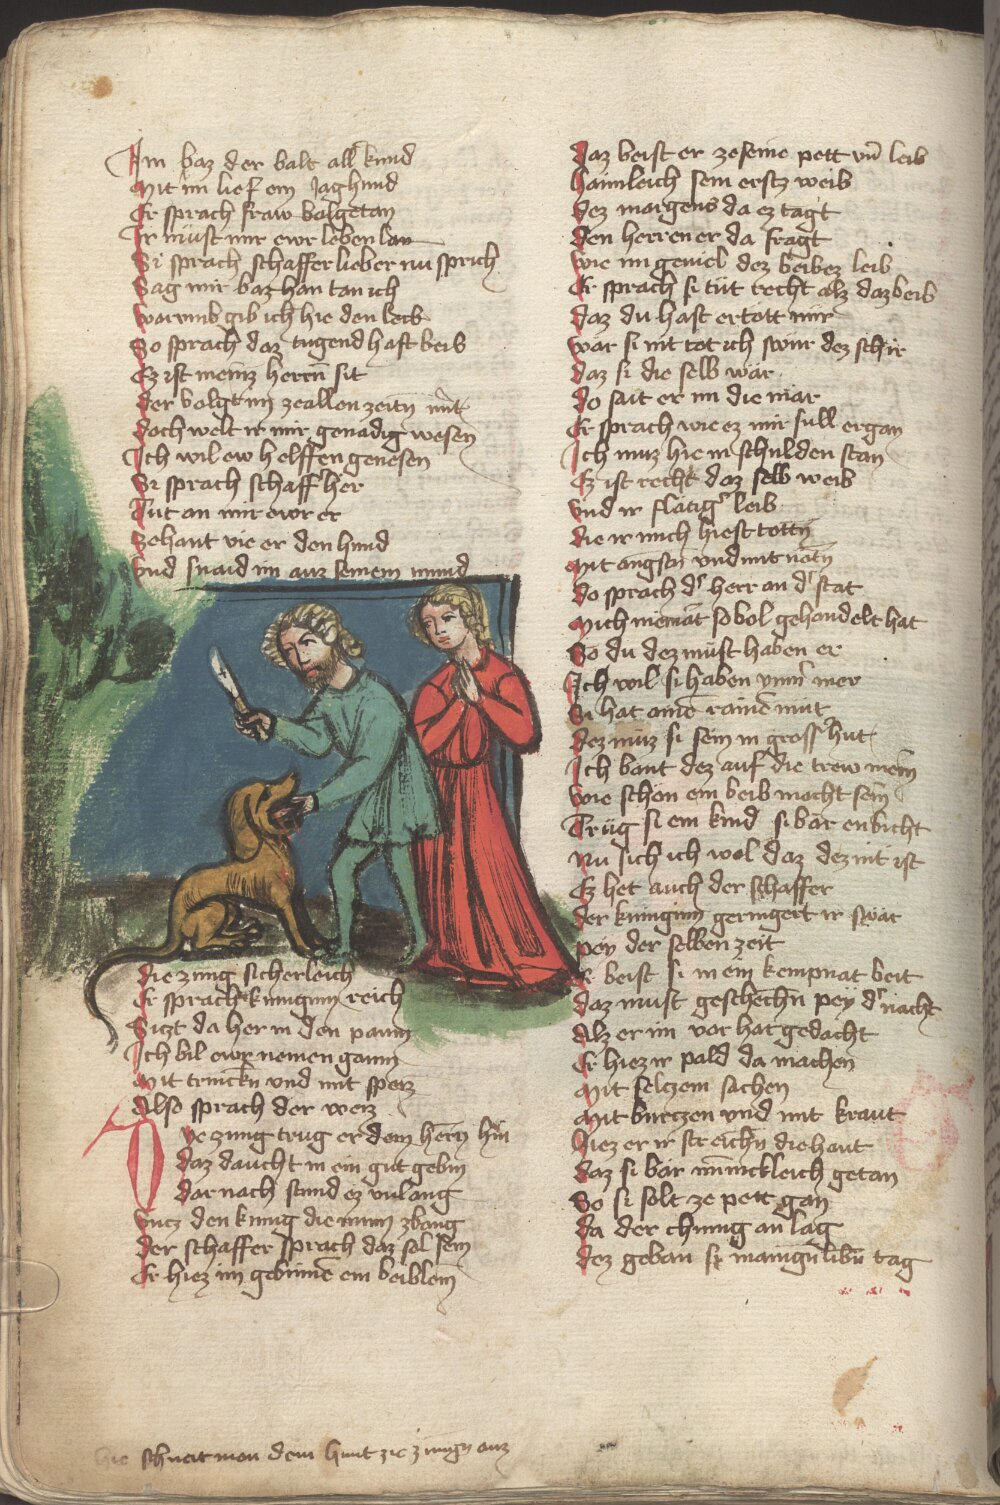 Im waz der walt all kund
Mit im lief ein Jaghund
Er sprach fraw wolgetan
Ir müst mir ewr leben lan
Si sprach schaffer lieber nu sprich
Sag mir waz han tan ich
Warumb gib ich hie den leib
So sprach daz tugendhaft weib
Ez ist meinz herrn sit
Der volgt im ze allen zeitn mit
Doch welt ir mir genädig wesen
Ich wil ew helffen genesen
Si sprach schaffher
Tut an mir ewr er
Zehant vie er den hund
Und snaid im auz seinem mund
Die zung sicherleich
Er sprach kuniginn reich
Sizt da her in den pawm
Ich wil ewr nemen gawm
Mit trinckn und mit speiz
Also sprach der weiz
Die zung trug er dem herrn hin
Daz daucht in ein gut gebin
Dar nach stund ez unlang
Uncz den kunig die minn zwang
Der schaffer sprach daz sol sein
Er hiez im gebinne ein weiblein
Daz weist er ze seine pett vn leib
Haimleich sein erstz weib
Dez margens da ez tagt
Den herren er da fragt
Wie im geviel dez weibez leib
Er sprach si tüt recht alz daz weib
Daz du hast ertött mir
Wär si nit tot ich swür dez schir
Daz si die selb wär
Do sait er im die mär
Er sprach wie ez mir sull ergan
Ich muz hie in schulden stan
Ez ist recht daz selb weib
Und ir flätig leib
Die ir mich hiest tottn
Mit angsen und mit nötn
Do sprach der herr an der stat
Mich niemat so wol gehandelt hat
So du dez müst haben er
Ich wil si haben ymer mer
Si hat aine raine müt
Dez müz si sein in gross hut
Ich want dez auf die trew mein
Wie schon ein weib mocht sein
Trüg si ein kind si wär enwicht
Nu sich ich wol daz dez nit ist
Ez het auch der schaffer
Der kuniginn geringert ir swär
Pey der selben zeit
Er weist si in ein kempnat weit
Daz must geschechn pey der nacht
Alz er im vor hat gedacht
Er hiez ir pald da machen
Mit selczem sachen
Mit wurczen und mit kraut
Hiez er ir streichn die haut
Daz si wär minnickleich getan
So si solt ze pett gan
Da der chunig an lag
Dez gewan si manign libn tag
hie schneit man dem hunt die zungn auz